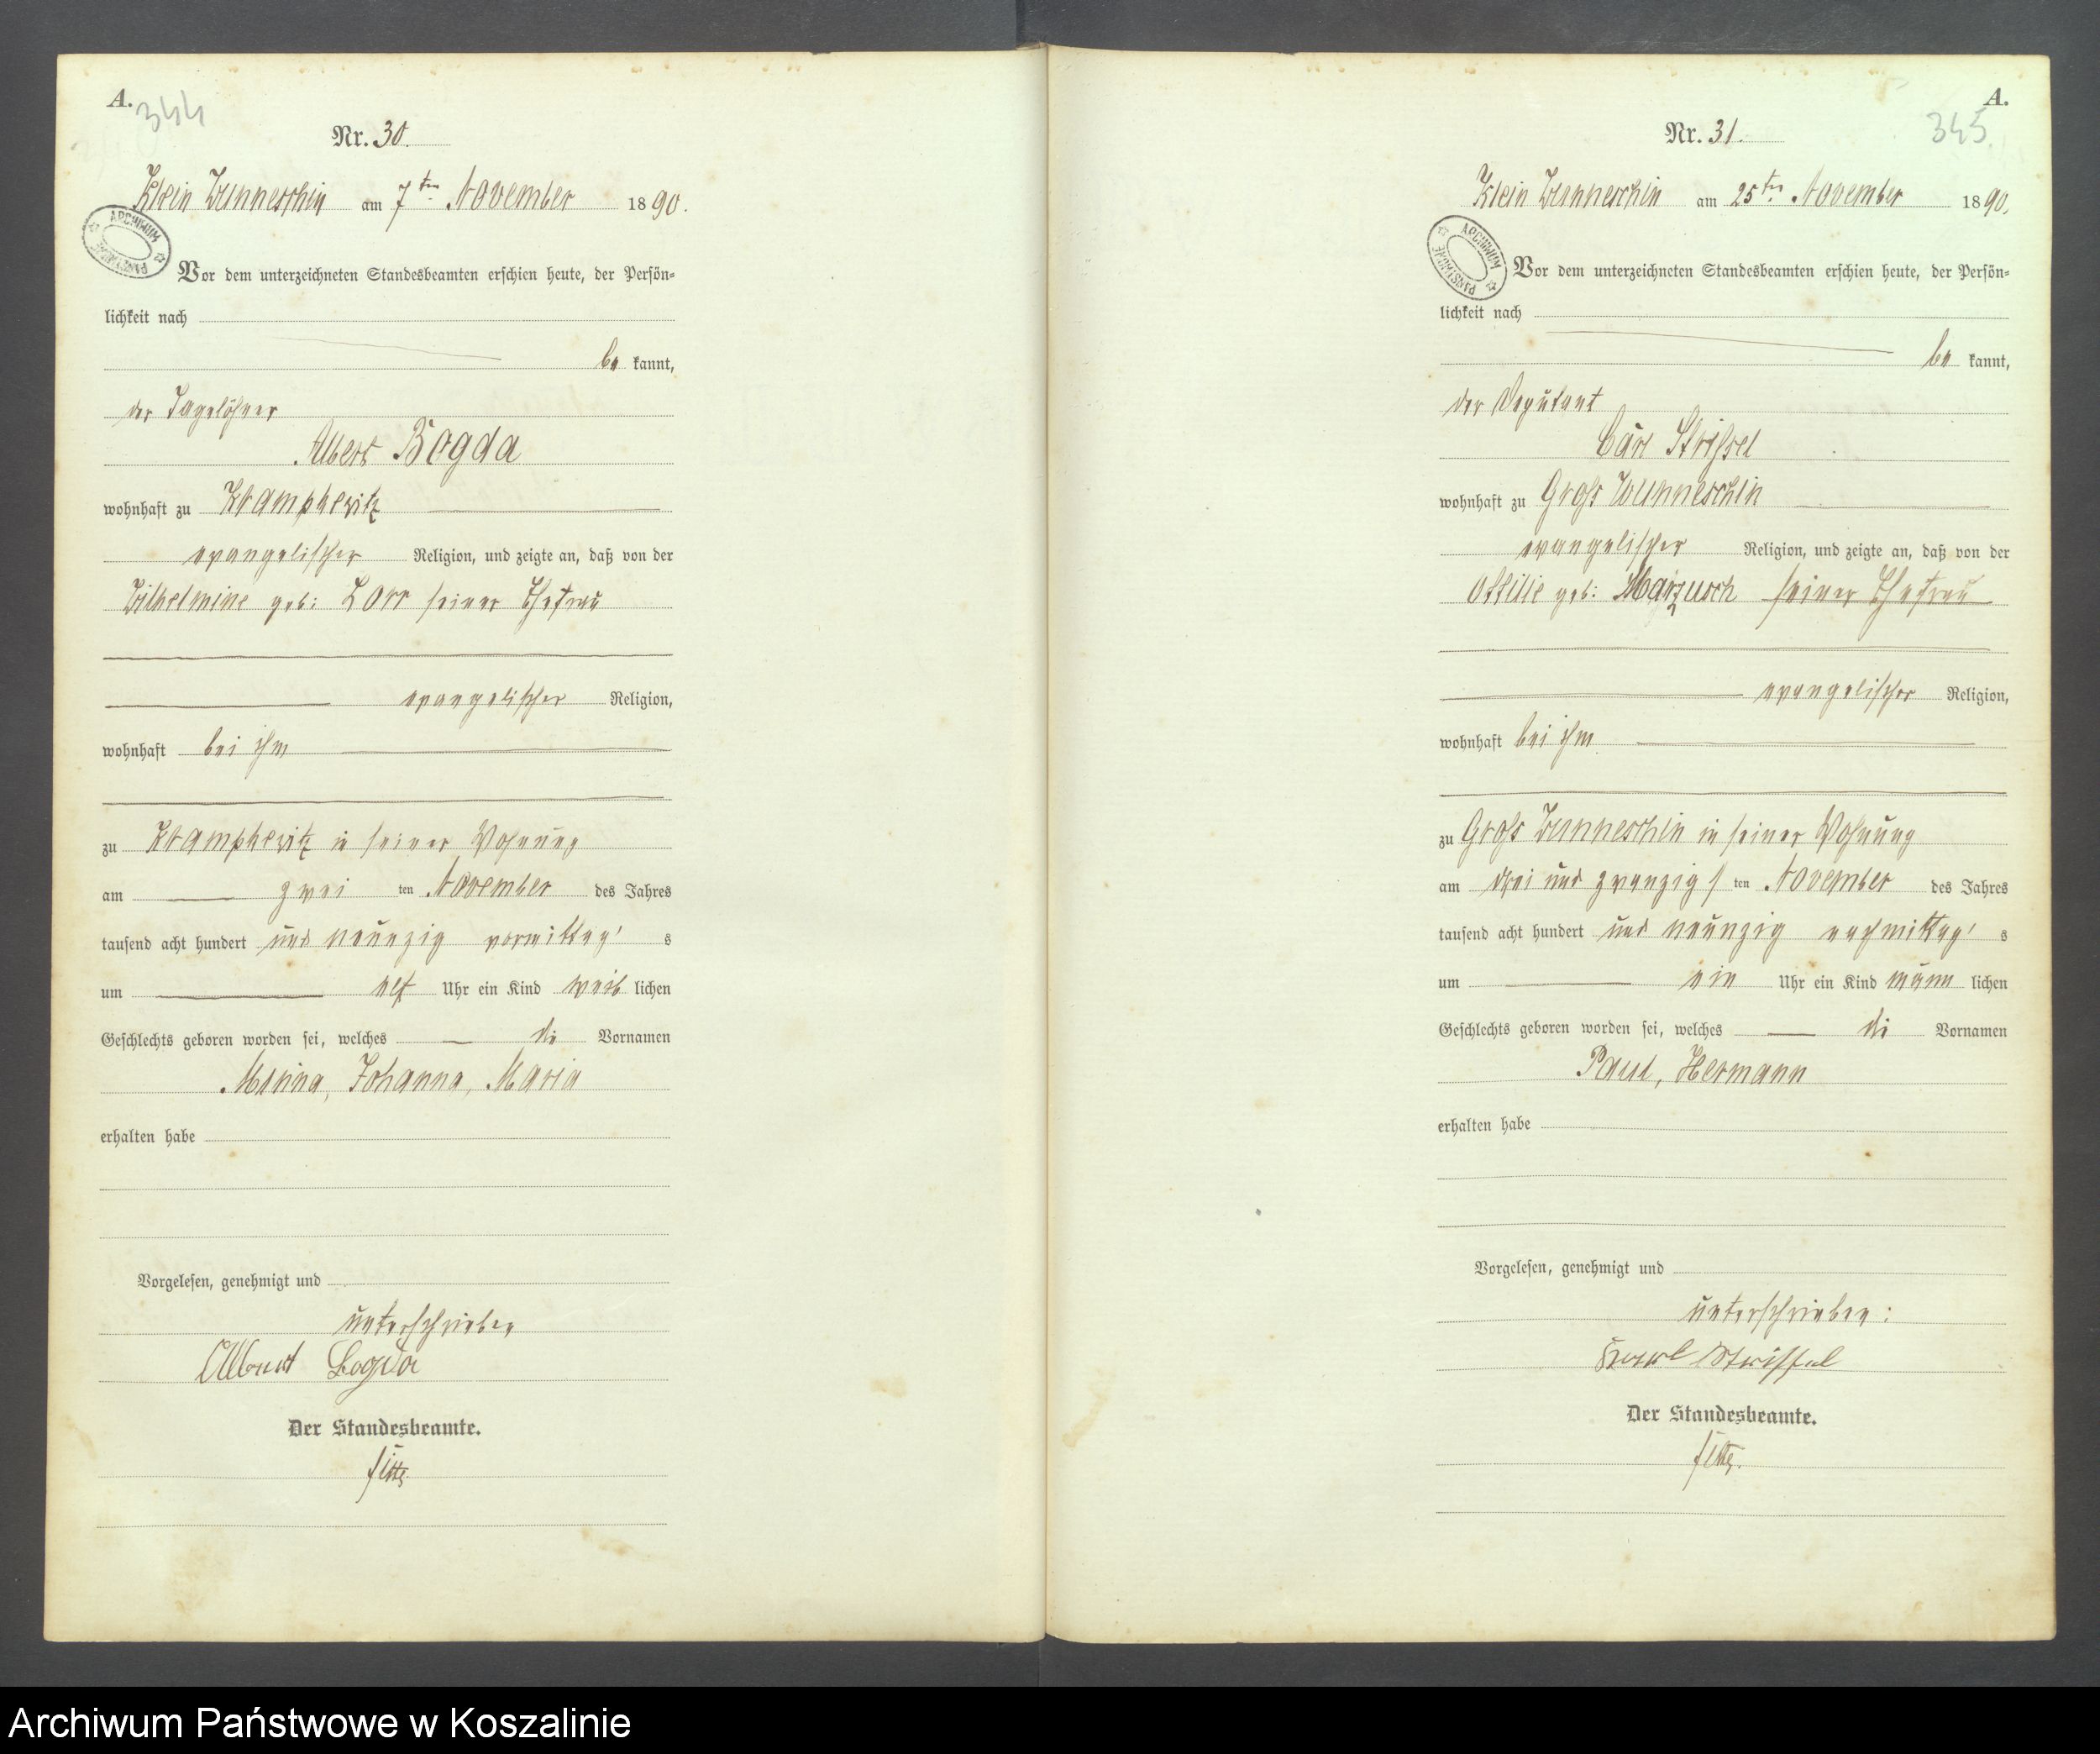 A.
344
Nr. 30.
Klein Wunneschin am 7ten November 1890.
ARCHIWUM PAŃSTWOWE
Vor dem unterzeichneten Standesbeamten erschien heute, der Persön-
lichkeit nach
be kannt,
der Tagelöhner
Albert Bogda
wohnhaft zu Krampkewitz
evangelischer Religion, und zeigte an, daß von der
Wilhelmine geb: Lorr seiner Ehefrau
evangelischer Religion,
wohnhaft bei ihm
zu Krampkewitz in seiner Wohnung
am zwei ten November des Jahres
tausend acht hundert und neunzig vormittag's
um elf Uhr ein Kind weib lichen
Geschlechts geboren worden sei, welches die Vornamen
Minna, Johanna, Maria
erhalten habe
Vorgelesen, genehmigt und
unterschrieben
Albert Bogda
Der Standesbeamte.
A.
345
Nr. 31.
Klein Wunneschin am 25ten November 1890.
ARCHIWUM PAŃSTWOWE
Vor dem unterzeichneten Standesbeamten erschien heute, der Persön-
lichkeit nach
be kannt,
der Deputant
Carl Strißel
wohnhaft zu Groß Wunneschin
evangelischer Religion, und zeigte an, daß von der
Ottilie geb: seiner Ehefrau
evangelischer Religion,
wohnhaft bei ihm
zu Groß Wunneschin in seiner Wohnung
am drei und zwanzigs ten November des Jahres
tausend acht hundert und neunzig nachmittag's
um ein Uhr ein Kind männ lichen
Geschlechts geboren worden sei, welches die Vornamen
Paul, Hermann
erhalten habe
Vorgelesen, genehmigt und
unterschrieben:
Karl Strissel
Der Standesbeamte.
Archiwum Państwowe w Koszalinie